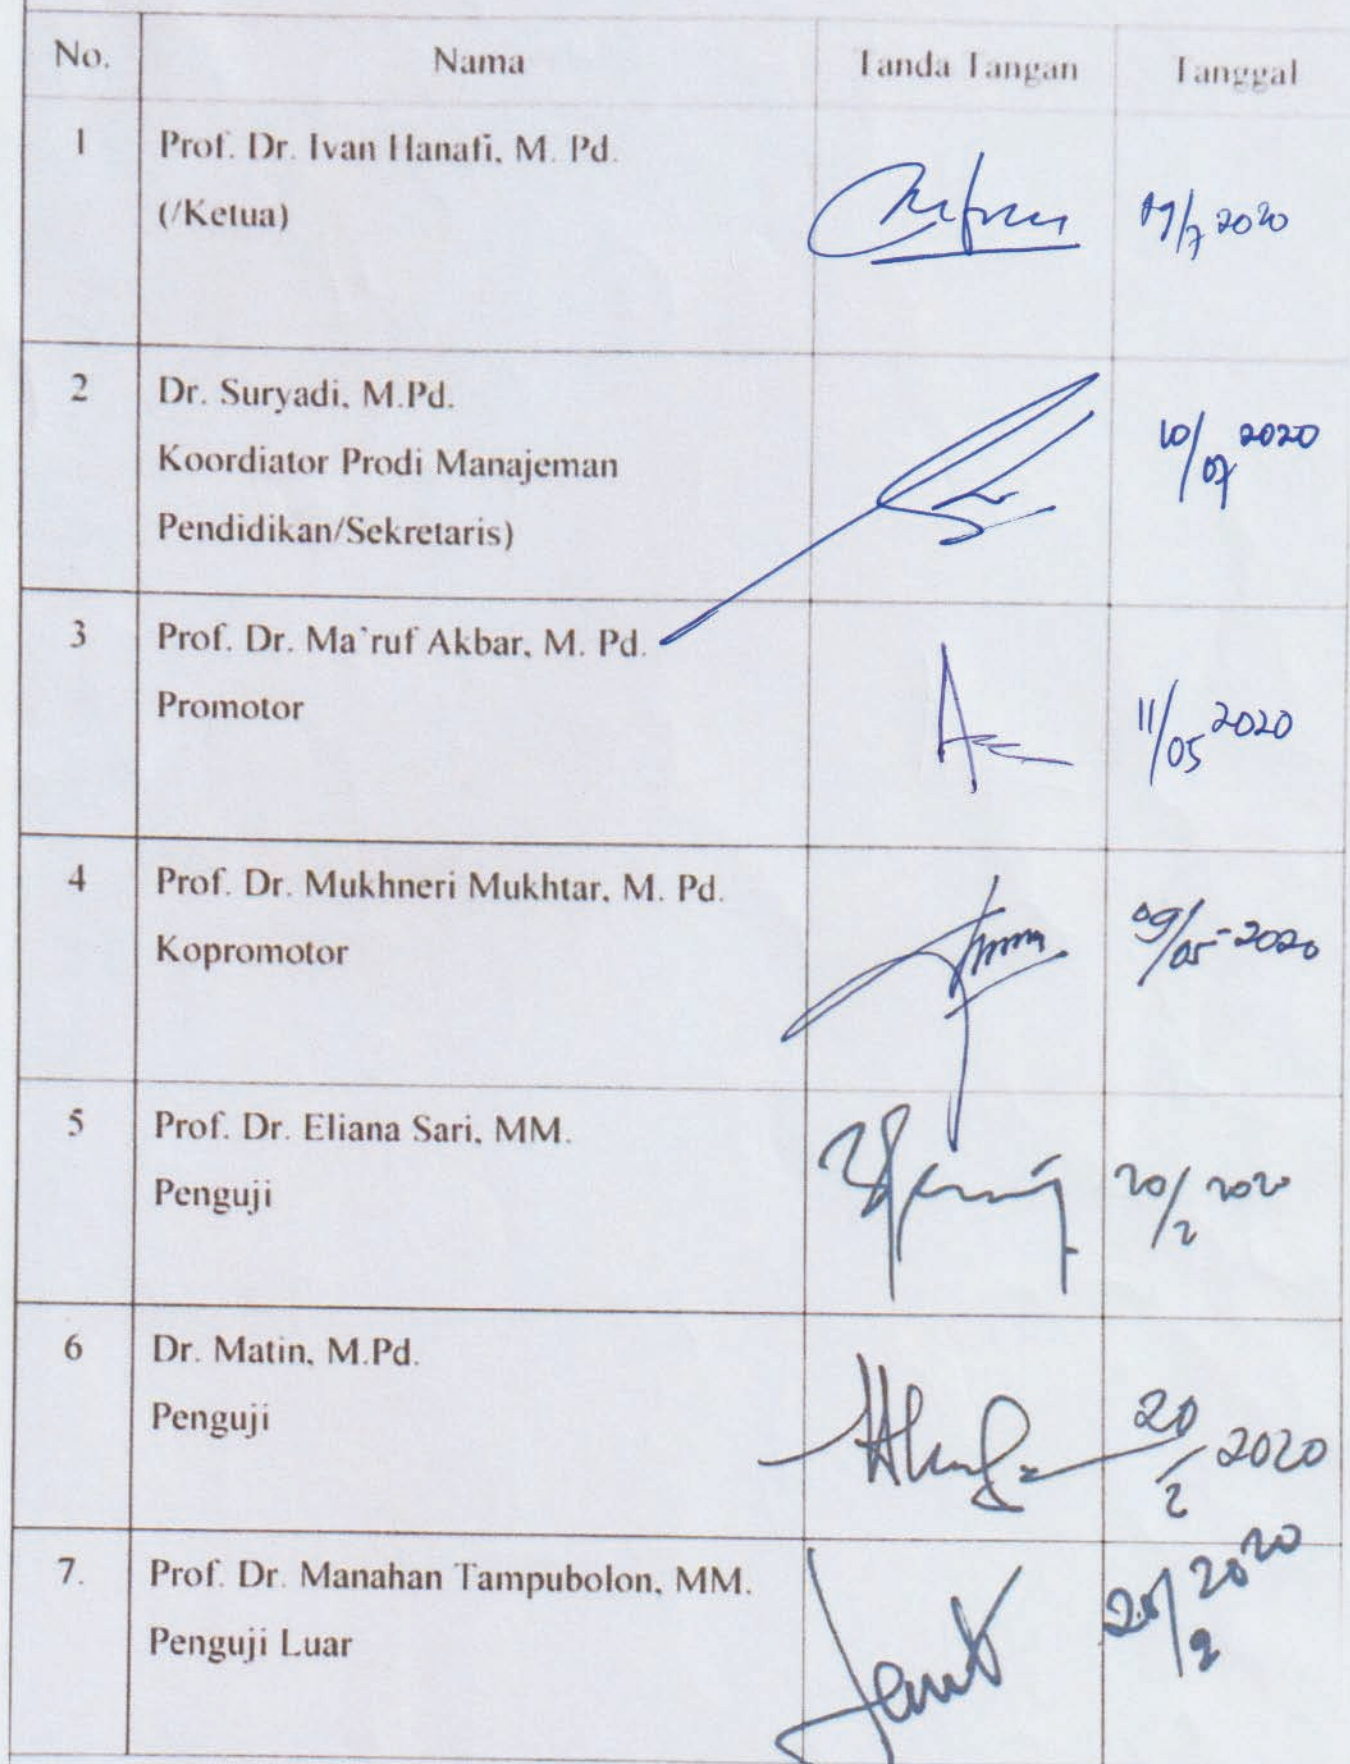 No. Nama Tanda Tangan Tanggal
1 Prof. Dr. Ivan Hanafi, M. Pd.
(/Ketua)
/7 2020
2 Dr. Suryadi, M.Pd.
Koordiator Prodi Manajeman
10/07 2020
Pendidikan/Sekretaris)
3 Prof. Dr. Ma`ruf Akbar, M. Pd.
Promotor
11/05 2020
4 Prof. Dr. Mukhneri Mukhtar, M. Pd.
Kopromotor
09/05-2020
5 Prof. Dr. Eliana Sari, MM.
Penguji
20/2 2020
6 Dr. Matin, M.Pd.
Penguji
20/2 2020
7. Prof. Dr. Manahan Tampubolon, MM.
Penguji Luar
2020